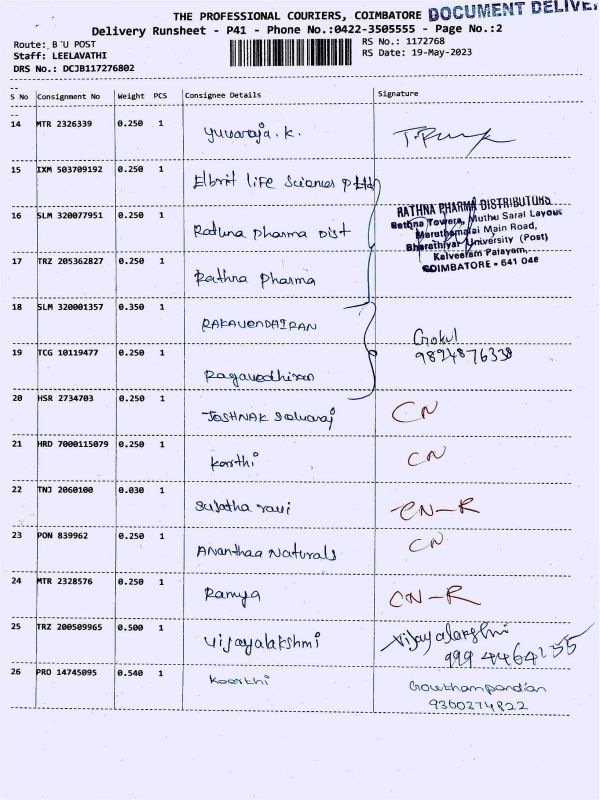 THE PROFESSIONAL COURIERS, COIMBATORE DOCUMENT DELIVE
Delivery Runsheet - P41 - Phone No.:0422-3505555 - Page No.:2
Route: B'U POST RS No.: 1172768
Staff: LEELAVATHI RS Date: 19-May-2023
DRS No.: DCJB117276802
S No Consignment No Weight PCS Consignee Details Signature
14 MTR 2326339 0.250 1 Yuvaraja. K.
15 IXM 503709192 0.250 1 Elbrit life Sciences P Ltd
16 SLM 320077951 0.250 1 Ratuna pharma Dist
RATHNA PHARMA DISTRIBUTORS
Rathna Towers, Muthu Saral Layout
Marathamalai Main Road,
Bharathiyar University (Post)
Kalveeram Palayam,
COIMBATORE - 641 046
17 TRZ 205362827 0.250 1 Rathna pharma
18 SLM 320001357 0.350 1 RAKAVENDHIRAN
Gokul
19 TCG 10119477 0.250 1 Ragavedhiran
20 HSR 2734703 0.250 1 JOSHNAK Selvaraj CN
21 HRD 7000115079 0.250 1 Karthi CN
22 TNJ 2060100 0.030 1 Sujatha ravi CN-R
23 PON 839962 0.250 1 Ananthaa Naturals CN
24 MTR 2328576 0.250 1 Ramya CN-R
25 TRZ 200509965 0.500 1 Vijayalakshmi Vijayalakshmi
26 PRO 14745095 0.540 1 Karthi Gowthampandian
9360374822